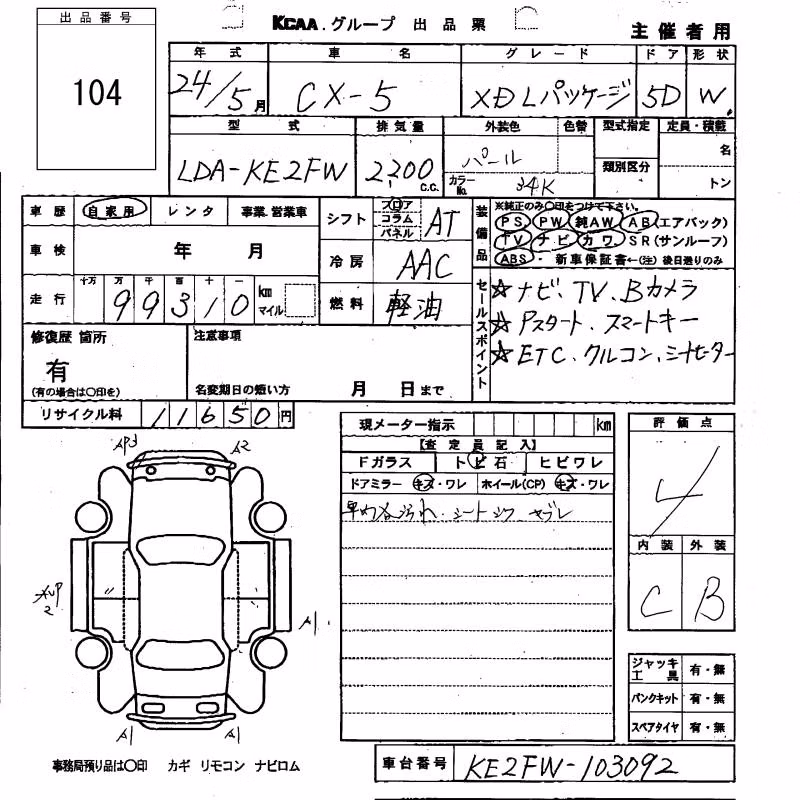 KCAA.グループ 出品票
主催者用
出品番号
104
年式 車名 グレード ドア 形状
24/5月 CX-5 XD Lパッケージ 5D W
型式 排気量 外装色 色替 型式指定 定員・積載
LDA-KE2FW 2,200 C.C. パール 名
カラーNo. 34K 類別区分 トン
車歴 自家用 レンタ 事業.営業車
シフト フロア コラム パネル AT
装備品 ※純正のみ○印をつけて下さい。
PS PW 純AW AB(エアバック)
TV ナビ カワ SR(サンルーフ)
ABS・新車保証書←(注)後日送りのみ
車検 年 月
冷房 AAC
走行 十万 万 千 百 十 一
99310 km マイル
燃料 軽油
セールスポイント
☆ナビ、TV、Bカメラ
☆Pスタート、スマートキー
☆ETC、クルコン、シートヒーター
修復歴 箇所
有
(有の場合は○印を)
注意事項
名変期日の短い方 月 日まで
リサイクル料 11650円
現メーター指示 km
【査定員記入】
Fガラス トビ石 ヒビワレ
ドアミラー キズ・ワレ ホイール(CP) キズ・ワレ
評価点
4
内装 外装
C B
AP3 A2
2
A1
A1 A1
ジャッキ工具 有・無
パンクキット 有・無
スペアタイヤ 有・無
事務局預り品は○印 カギ リモコン ナビロム
車台番号 KE2FW-103092